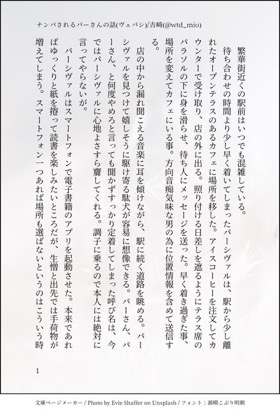 ナンパされるパーさんの話(ヴェパシ)/吉崎(@wtd_mio)
繁華街近くの駅前はいつでも混雑している。
待ち合わせの時間より少し早く着いてしまったパーシヴァルは、駅から少し離
れたオープンテラスのあるカフェに場所を移した。アイスコーヒーを注文してカ
ウンターで受け取り、店の外に出る。照り付ける日差しを遮るようにテラス席の
パラソルの下に身を滑らせ、待ち人にメッセージを送った。早く着き過ぎた事、
場所を変えてカフェにいる事。方向音痴気味な男の為に位置情報を含めて送信す
る。
店の中から漏れ聞こえる音楽に耳を傾けながら、駅に続く道路を眺める。パー
シヴァルを見つけて嬉しそうに駆け寄る駄犬が容易に想像できる。パーさん、パ
ーさん、と何度やめろと言っても聞かずすっかり定着してしまった呼び名は、今
ではパーシヴァルに心地よさすら齎してくれる。調子に乗るので本人には絶対に
言ってやらないが。
パーシヴァルはスマートフォンで電子書籍のアプリを起動させた。本来であれ
ばゆっくりと紙を捲って読書を楽しみたいところだが、生憎と出先では手荷物が
増えてしまう。スマートフォン一つあれば場所も選ばないというのはこういう時
1
文庫ページメーカー / Photo by Evie Shaffer on Unsplash / フォント：源暎こぶり明朝